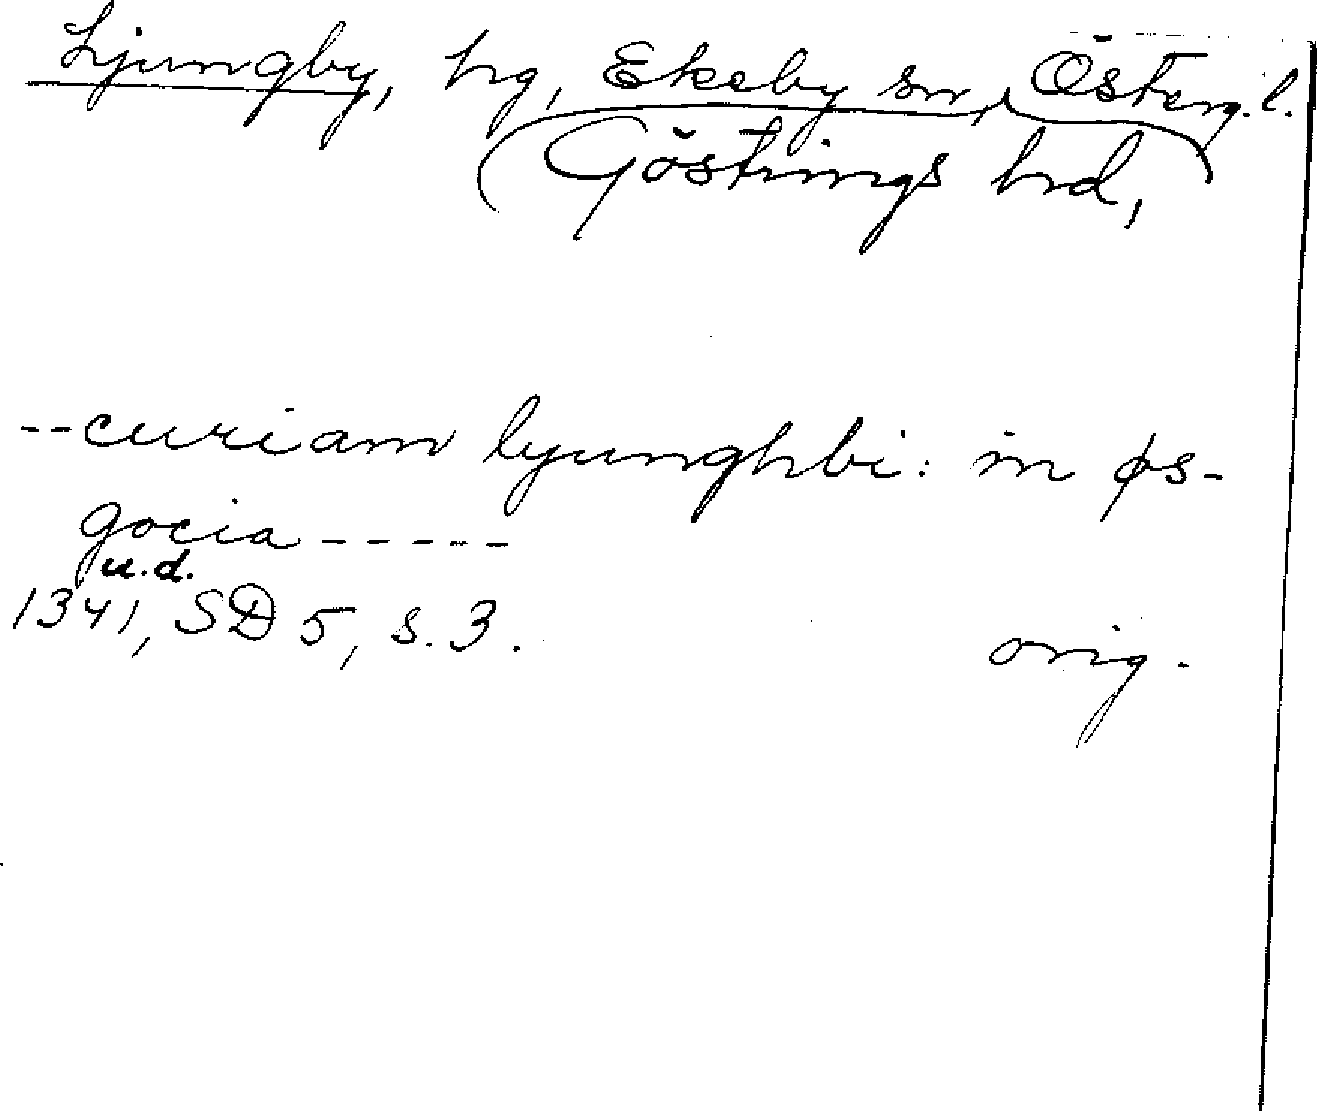 Ljungby, hg, Ekeby sn, Österg. l.
Göstrings hrd,
--curiam lyunghbi: in øs-
gocia-----
u.d.
1341, SD 5, s. 3.
orig.